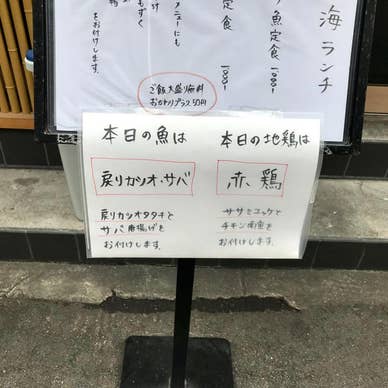 海 ランチ
魚定食 1000-
定食 1000-
メニューにも
もずく
をお付けします。
ご飯大盛り無料
おかわりプラス50円
本日の魚は
戻りカツオ・サバ
戻りカツオタタキと
サバ唐揚げを
お付けします。
本日の地鶏は
赤鶏
ササミユッケと
チキン南蛮を
お付けします。